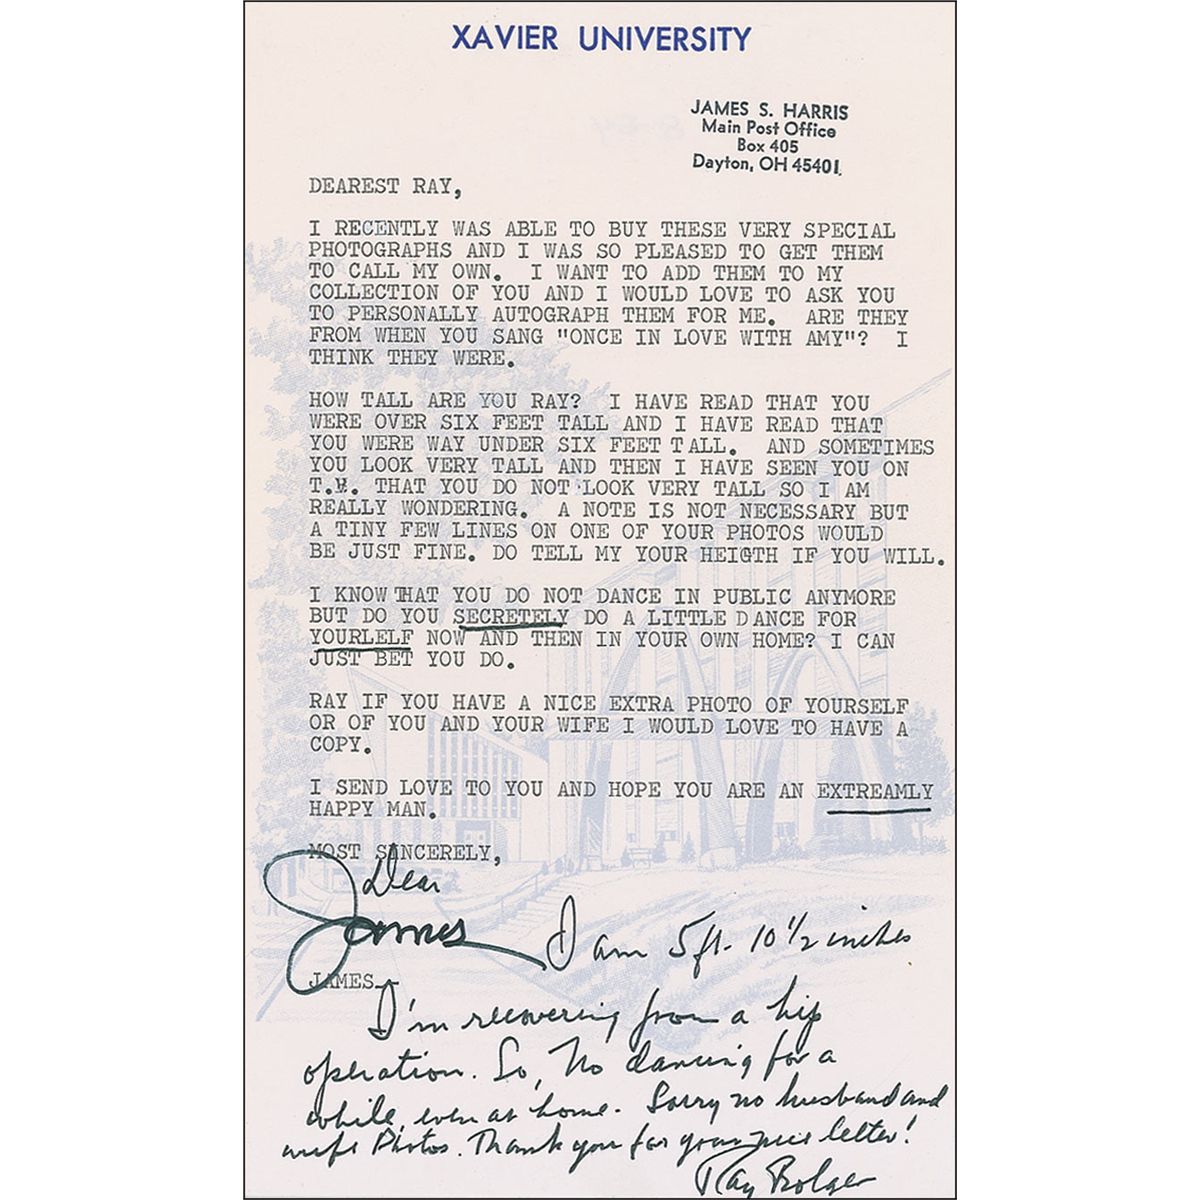 XAVIER UNIVERSITY
JAMES S. HARRIS
Main Post Office
Box 405
Dayton, OH 45401
DEAREST RAY,
I RECENTLY WAS ABLE TO BUY THESE VERY SPECIAL
PHOTOGRAPHS AND I WAS SO PLEASED TO GET THEM
TO CALL MY OWN. I WANT TO ADD THEM TO MY
COLLECTION OF YOU AND I WOULD LOVE TO ASK YOU
TO PERSONALLY AUTOGRAPH THEM FOR ME. ARE THEY
FROM WHEN YOU SANG "ONCE IN LOVE WITH AMY"? I
THINK THEY WERE.
HOW TALL ARE YOU RAY? I HAVE READ THAT YOU
WERE OVER SIX FEET TALL AND I HAVE READ THAT
YOU WERE WAY UNDER SIX FEET TALL. AND SOMETIMES
YOU LOOK VERY TALL AND THEN I HAVE SEEN YOU ON
T.V. THAT YOU DO NOT LOOK VERY TALL SO I AM
REALLY WONDERING. A NOTE IS NOT NECESSARY BUT
A TINY FEW LINES ON ONE OF YOUR PHOTOS WOULD
BE JUST FINE. DO TELL MY YOUR HEIGTH IF YOU WILL.
I KNOW THAT YOU DO NOT DANCE IN PUBLIC ANYMORE
BUT DO YOU SECRETELY DO A LITTLE DANCE FOR
YOURLELF NOW AND THEN IN YOUR OWN HOME? I CAN
JUST BET YOU DO.
RAY IF YOU HAVE A NICE EXTRA PHOTO OF YOURSELF
OR OF YOU AND YOUR WIFE I WOULD LOVE TO HAVE A
COPY.
I SEND LOVE TO YOU AND HOPE YOU ARE AN EXTREAMLY
HAPPY MAN.
MOST SINCERELY,
Dear
James I am 5 ft- 10 1/2 inches
JAMES
I'm recovering from a hip
operation. So, No dancing for a
while, even at home. Sorry no husband and
wife Photos. Thank you for your nice letter!
Ray Bolger